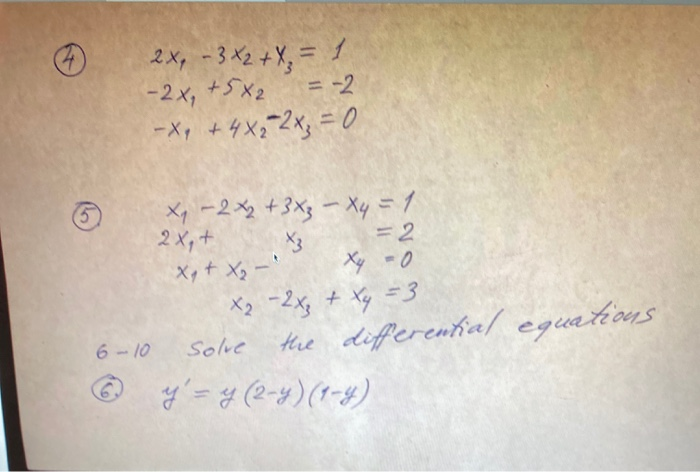 ④ 2x₁ - 3x₂ + x₃ = 1
-2x₁ + 5x₂ = -2
-x₁ + 4x₂ - 2x₃ = 0
⑤ x₁ - 2x₂ + 3x₃ - x₄ = 1
2x₁ + x₃ = 2
x₁ + x₂ - x₄ = 0
x₂ - 2x₃ + x₄ = 3
6-10 Solve the differential equations
⑥. y' = y(2-y)(1-y)